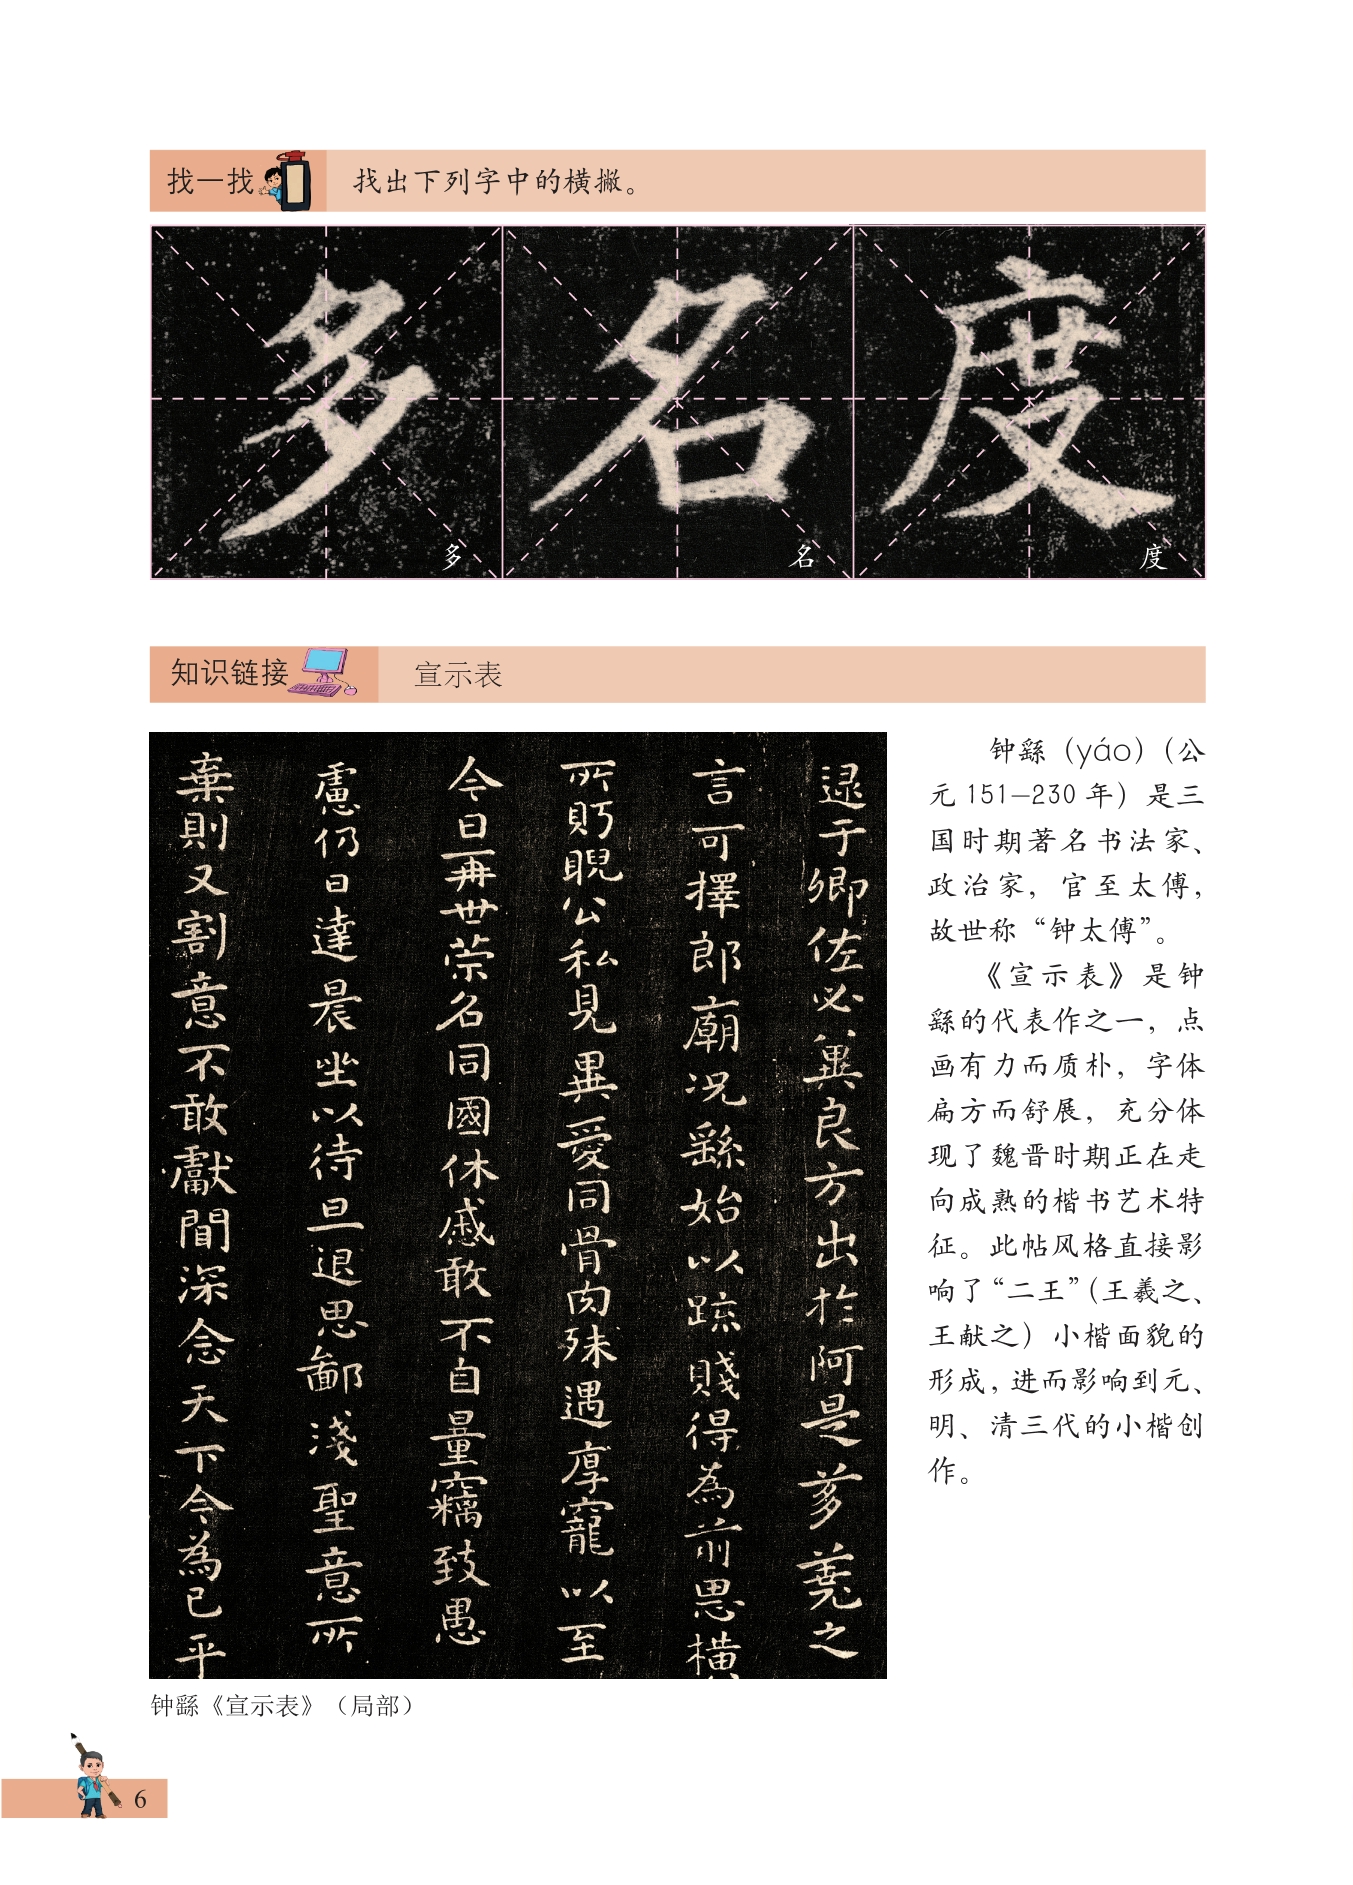 找一找
找出下列字中的横撇。
多
名
度
多
名
度
知识链接
宣示表
逮于卿佐必冀良方出於阿是芻蕘之
言可擇郎廟況繇始以疏賤得為前思橫
所眄睨公私見異愛同骨肉殊遇厚寵以至
今日再世荣名同國休慼敢不自量竊致愚
慮仍日達晨坐以待旦退思鄙淺聖意所
棄則又割意不敢獻聞深念天下今為已平
钟繇（yáo）（公
元151—230年）是三
国时期著名书法家、
政治家，官至太傅，
故世称“钟太傅”。
《宣示表》是钟
繇的代表作之一，点
画有力而质朴，字体
扁方而舒展，充分体
现了魏晋时期正在走
向成熟的楷书艺术特
征。此帖风格直接影
响了“二王”（王羲之、
王献之）小楷面貌的
形成，进而影响到元、
明、清三代的小楷创
作。
钟繇《宣示表》（局部）
6